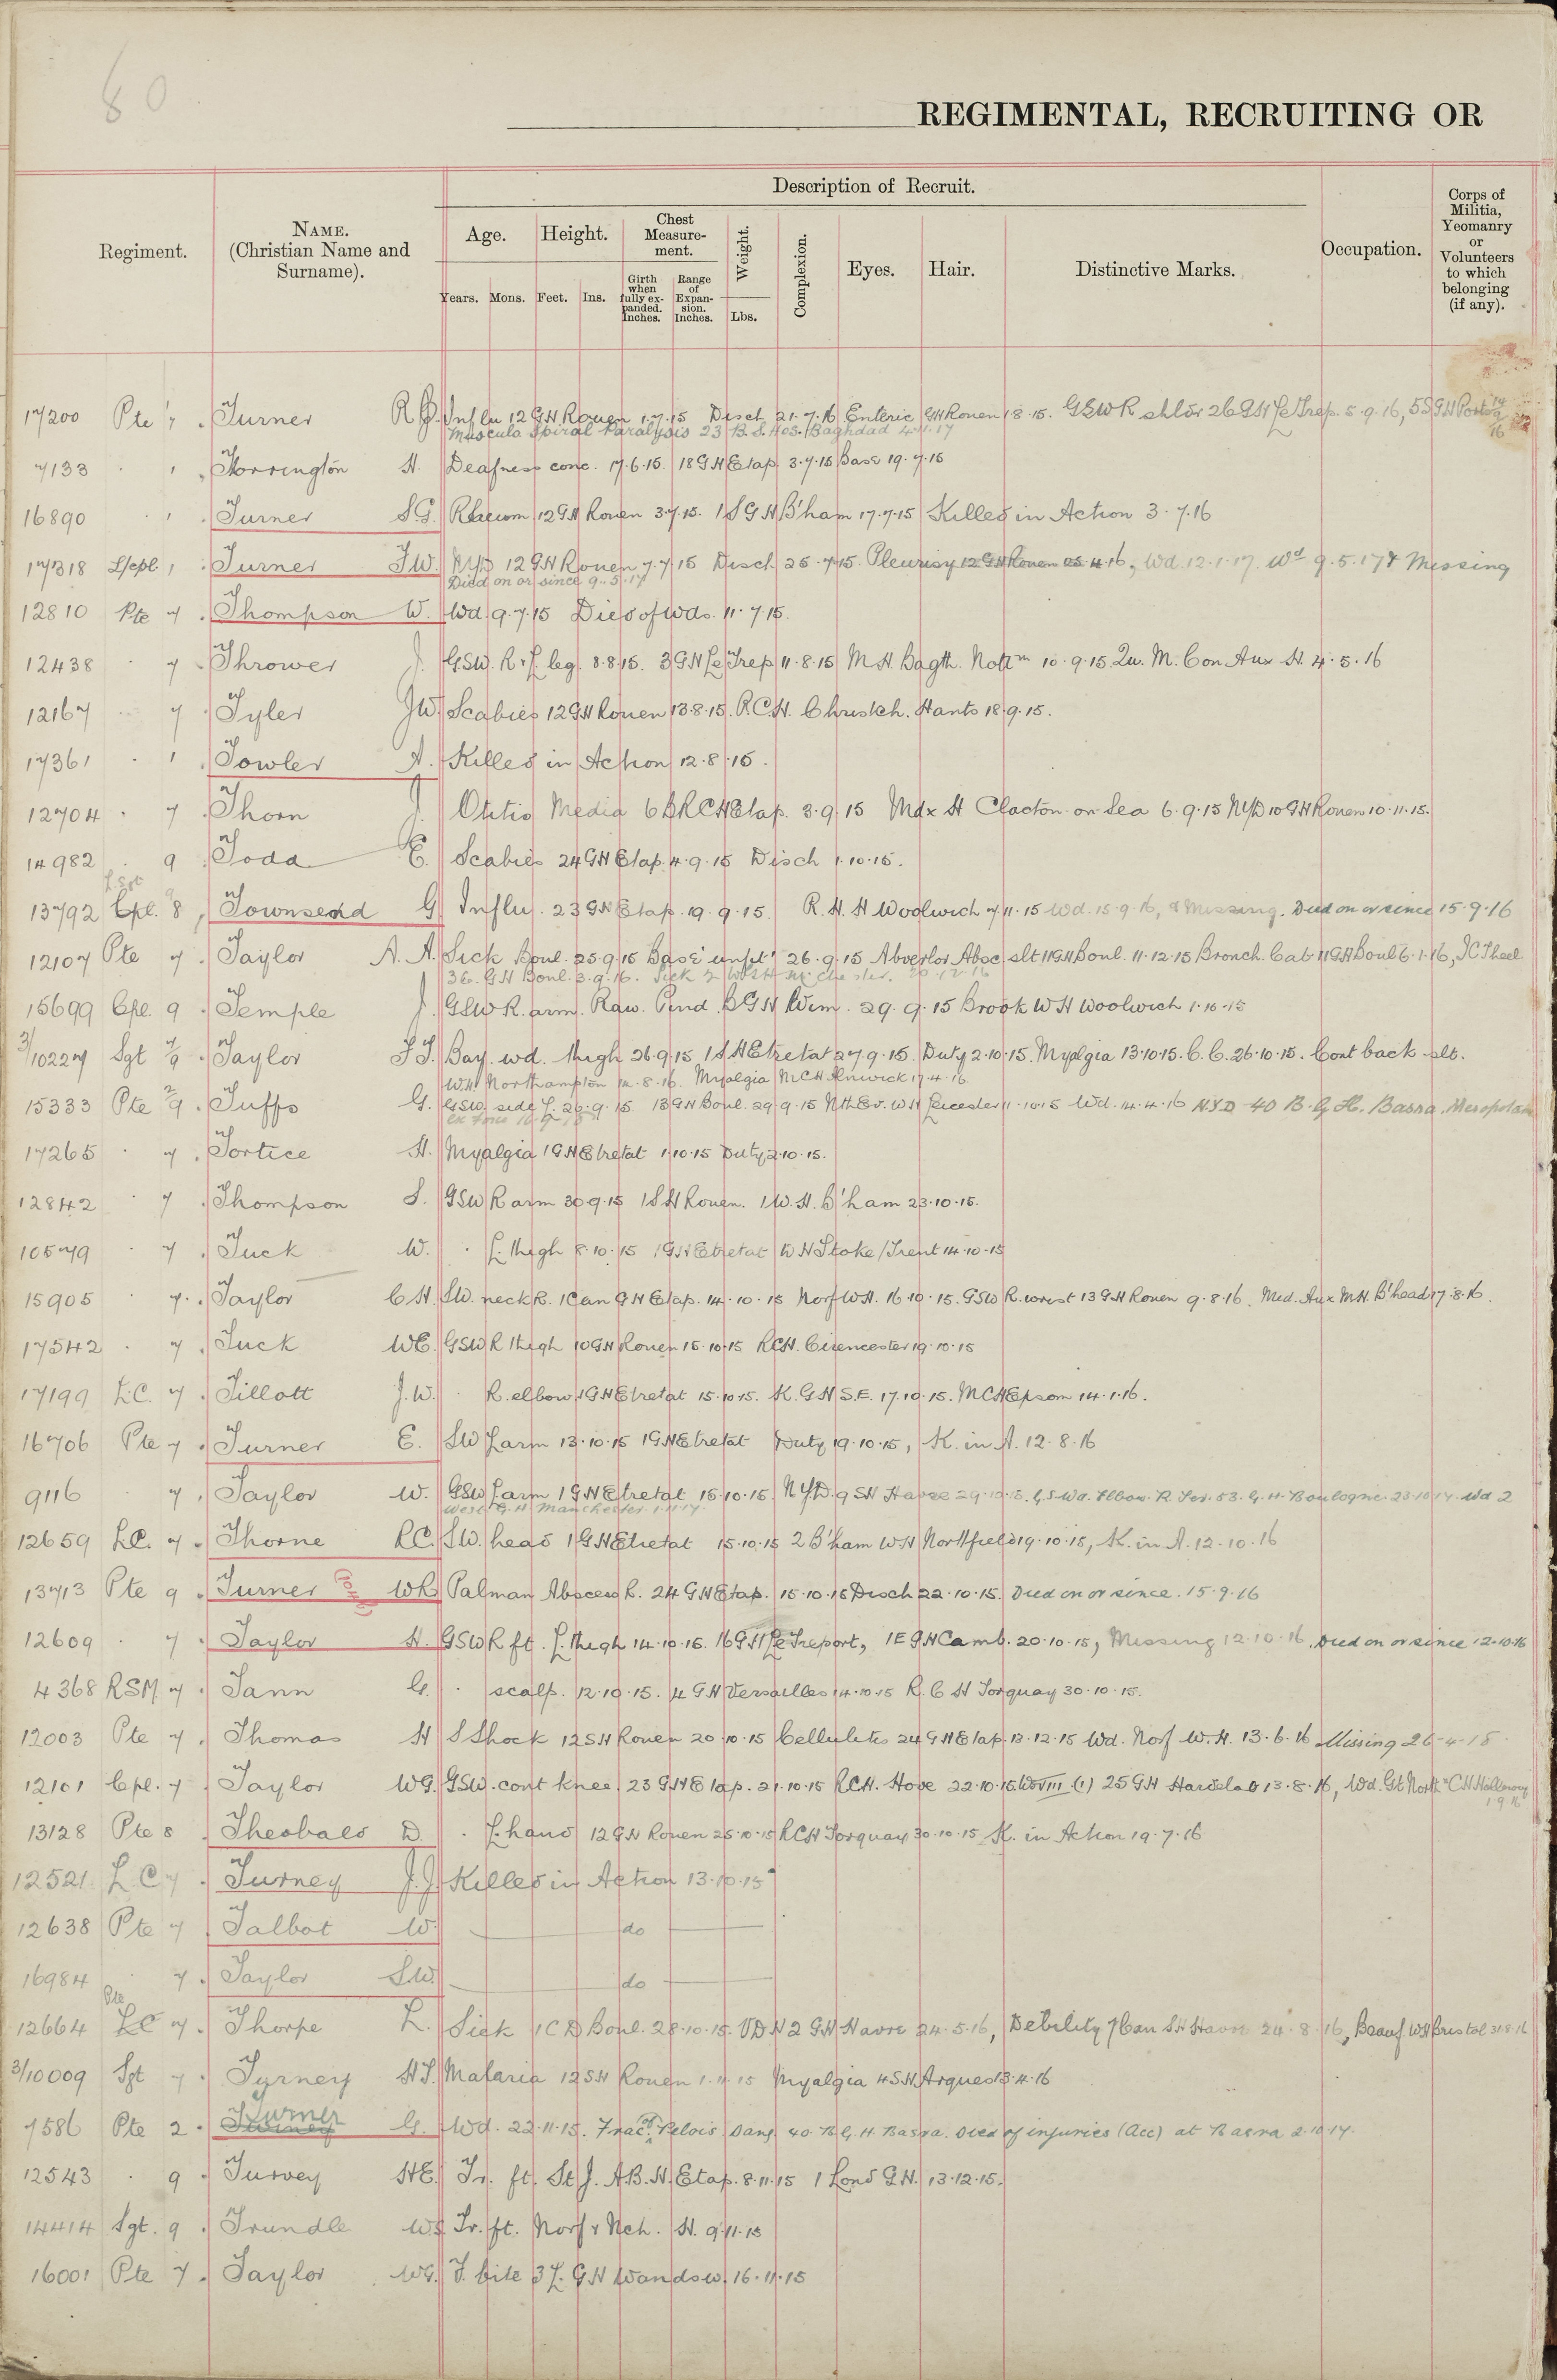 80
REGIMENTAL, RECRUITING OR
Description of Recruit.
Regiment.
NAME.
(Christian Name and
Surname).
Age.
Height.
Chest
Measure-
ment.
Weight.
Complexion.
Eyes.
Hair.
Distinctive Marks.
Occupation.
Corps of
Militia,
Yeomanry
or
Volunteers
to which
belonging
(if any).
Years.
Mons.
Feet.
Ins.
Girth
when
fully ex-
panded.
Inches.
Range
of
Expan-
sion.
Inches.
Lbs.
17200 Pte 7 Turner R Influ 12 GH Rouen 1.7.15 Disch 21.7.15 Enteric GH Rouen 1.8.15. GSW R shldr 2 GH Le Trep. 5.9.16,
Musculo Spiral Paralysis 23 B.S. Hos. Baghdad
7133 Torrington H. Deafness conc. 17.6.15. 18 GH Etap. 3.7.15 Base 19.7.15
16890 Turner S.G. 12 GH Rouen 3.7.15. 1 S G H B'ham 17.7.15 Killed in Action 3.7.16
17318 L/cpl Turner F.W. NYD 12 GH Rouen 7.7.15 Disch 25.7.15. Pleurisy 12 GH Rouen 25.4.16, Wd. 12.1.17. Wd 9.5.17 & Missing
Died on or since 9.5.17
12810 Pte 7 Thompson W. Wd. 9.7.15 Died of Wds. 11.7.15.
12438 7 Thrower J. GSW. R & L leg. 8.8.15. 3 GH Le Trep 11.8.15 M.H. Bagth. Nottm 10.9.15. Qu. M. Con Aux H. 4.5.16
12167 7 Tyler J W. Scabies 12 GH Rouen 13.8.15. R.C.H. Christch. Hants 18.9.15.
17361 Towler A. Killed in Action 12.8.15.
12704 7 Thorn J. Otitis Media 6 B R C H Etap. 3.9.15 Mdx H Clacton-on-Sea 6.9.15 NYD 10 GH Rouen 10.11.15.
14982 9 Todd E. Scabies 24 GH Etap. 4.9.15 Disch 1.10.15.
L. Sgt
13792 Cpl. 8 Townsend G Influ. 23 GH Etap. 19.9.15. R.H.H Woolwich 7.11.15 Wd. 15.9.16, & Missing. Died on or since 15.9.16
12107 Pte 7 Taylor A. A. Sick Boul. 25.9.15 Base unfit 26.9.15 Absc slt 11 GH Boul. 11.12.15 Bronch. Cat 11 GH Boul 6.1.16,
36. GH Boul. 3.9.16. Sick
15699 Cpl. 9 Temple J. GSW R. arm. GH Wim. 29.9.15 Brook W H Woolwich 1.10.15
3/10227 Sgt 7/9 Taylor F J. Bay. wd. thigh 26.9.15 1 S H Etretat 27.9.15. Duty 2.10.15. Myalgia 13.10.15. C.C. 26.10.15. Cont back slt.
W.H Northampton 14.8.16. Myalgia M C H Alnwick 17.4.16
15333 Pte 2/9 Tuffs G. GSW. side L. 26.9.15 13 GH Boul. 29.9.15 Nth Ev. W H Leicester 11.10.15 Wd. 14.4.16 NYD 40 B.G.H. Basra.
17265 7 Tortice H. Myalgia 1 GH Etretat 1.10.15 Duty 2.10.15.
12842 7 Thompson S. GSW R arm 30.9.15 1 S H Rouen. 1 W.H. B'ham 23.10.15.
10579 7 Tuck W. L. thigh 8.10.15 1 GH Etretat W H Stoke/Trent 14.10.15
15905 7 Taylor C H. SW. neck R. 1 Can GH Etap. 14.10.15 Norf W.H. 16.10.15. GSW R. wrist 13 GH Rouen 9.8.16. Med. Aux M H. B'head 17.8.16.
17542 7 Tuck W E. GSW R thigh 10 GH Rouen 15.10.15 RCH. Cirencester 19.10.15
17199 L.C. 7 Tillott J. W. R. elbow 1 GH Etretat 15.10.15. K. G H S.E. 17.10.15. M C H Epsom 14.1.16.
16706 Pte 7 Turner E. SW L arm 13.10.15 1 GH Etretat Duty 19.10.15, K. in A. 12.8.16
9116 7 Taylor W. GSW L arm 1 GH Etretat 15.10.15. NYD. 9 SH Havre 29.12.15. Elbow R 53. G.H. Boulogne. 23.10.17. Wd 2
West G.H Manchester 1.11.17.
12659 LC. 7 Thorne R C. SW. head 1 GH Etretat 15.10.15 2 B'ham W H Northfield 19.10.15, K. in A. 12.10.16
13713 Pte 9 Turner W R Palman Abscess R. 24 GH Etap. 15.10.15 Disch 22.10.15. Died on or since. 15.9.16
12609 7 Taylor H. GSW R ft. L. thigh 14.10.15. 16 GH Le Treport, 1 E GH Camb. 20.10.15, Missing 12.10.16. Died on or since 12.10.16
4368 RSM 7 Tann G. scalp. 12.10.15. 4 GH Versailles 14.10.15 R.C H Torquay 30.10.15.
12003 Pte 7 Thomas H S Shock 12 SH Rouen 20.10.15 Cellulitis 24 GH Etap. 13.12.15 Wd. Norf W.H. 13.6.16 Missing 26.4.18
12101 Cpl. 7 Taylor W G. GSW. cont knee. 23 GH Etap. 21.10.15 RCH. Hove 22.10.15. (1) 25 GH Hardelot 13.8.16, Wd. Gt North C H Holloway
1.9.16
13128 Pte 8 Theobald D. L. hand 12 GH Rouen 25.10.15 RCH Torquay 30.10.15 K. in Action 19.7.16
12521 L C 7 Turney J. J. Killed in Action 13.10.15
12638 Pte 7 Talbot W. do
16984 7 Taylor S W. do
Pte
12664 LC 7 Thorpe L. Sick 1 C D Boul. 28.10.15. VDH 2 GH Havre 24.5.16, Debility 7 Can S H Havre 24.8.16, Beauf W H Bristol 31.8.16
3/10009 Sgt 7 Tyrney H J. Malaria 12 SH Rouen 1.11.15 Myalgia 4 SH Arques 13.4.16
7586 Pte 2 Turner G. Wd. 22.11.15. Frac. of Pelvis Dang 40. B.G.H. Basra. Died of injuries (Acc) at Basra 2.10.17.
12543 9 Turvey H E. Tr. ft. St J. A B. H. Etap. 8.11.15 1 Lond G H. 13.12.15.
14414 Sgt. 9 Trundle W S Tr. ft. Norf & Nch. H. 9.11.15
16001 Pte 7 Taylor W G. F. bite 3 L. G H Wandsw. 16.11.15